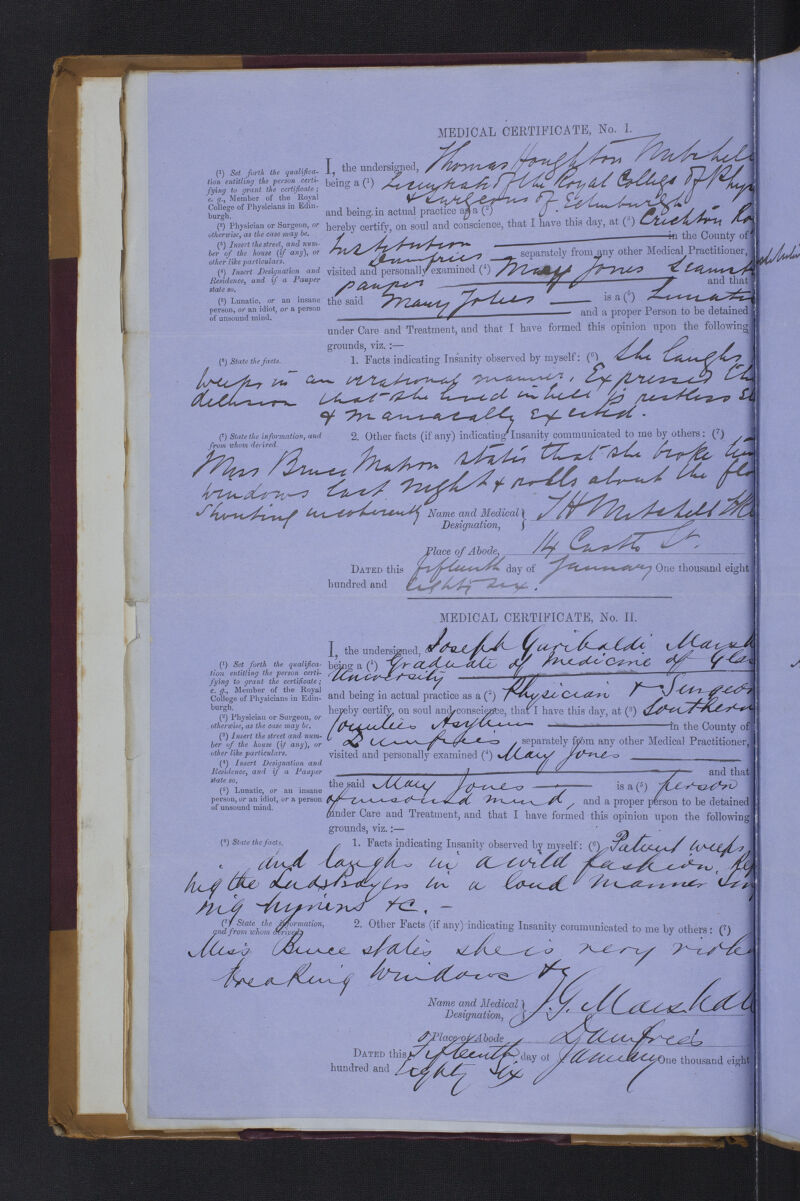 MEDICAL CERTIFICATE, No. I.
I, the undersigned, Thomas Houghton Mitchell
(1) Set forth the qualifica-
tion entitling the person certi-
fying to grant the certificate;
e. g., Member of the Royal
College of Physicians in Edin-
burgh.
(2) Physician or Surgeon, or
otherwise, as the case may be.
(3) Insert the street, and num-
ber of the house (if any), or
other like particulars.
(4) Insert Designation and
Residence, and if a Pauper
state so.
(5) Lunatic, or an insane
person, or an idiot, or a person
of unsound mind.
being a (1) Licentiate of the Royal College of Phys
& Surgeons of Edinburgh
and being in actual practice as a (2)
hereby certify, on soul and conscience, that I have this day, at (3) Crichton Ro
Institution in the County of
Dumfries separately from any other Medical Practitioner,
visited and personally examined (4) Mary Jones Seamst
pauper and that
the said Mary Jones is a (5) Lunatic
and a proper Person to be detained
under Care and Treatment, and that I have formed this opinion upon the following
grounds, viz. :—
(6) State the facts.
1. Facts indicating Insanity observed by myself: (6) She laughs
weeps in an irrational manner. Expressed the
delusion that she lived in hell is restless
& maniacally excited.
(7) State the information, and
from whom derived.
2. Other facts (if any) indicating Insanity communicated to me by others: (7)
Miss Bruce Matron states that she broke
windows last night & rolls about the flo
shouting incoherently
Name and Medical
Designation,
T H Mitchell
Place of Abode, 14 Castle St.
DATED this fifteenth day of January One thousand eight
hundred and eighty six.
MEDICAL CERTIFICATE, No. II.
I, the undersigned, Joseph Garibaldi Marsh
(1) Set forth the qualifica-
tion entitling the person certi-
fying to grant the certificate;
e. g., Member of the Royal
College of Physicians in Edin-
burgh.
(2) Physician or Surgeon, or
otherwise, as the case may be.
(3) Insert the street and num-
ber of the house (if any), or
other like particulars.
(4) Insert Designation and
Residence, and if a Pauper
state so.
(5) Lunatic, or an insane
person, or an idiot, or a person
of unsound mind.
being a (1) Graduate of medicine of Glas
University
and being in actual practice as a (2) Physician & Surgeon
hereby certify, on soul and conscience, that I have this day, at (3) Southern
Counties Asylum in the County of
Dumfries separately from any other Medical Practitioner,
visited and personally examined (4) Mary Jones
and that
the said Mary Jones is a (5) person
of unsound mind, and a proper person to be detained
under Care and Treatment, and that I have formed this opinion upon the following
grounds, viz. :—
(6) State the facts.
1. Facts indicating Insanity observed by myself: (6) Patient weeps
and laughs in a wild fashion. Re
ing the Lords Prayers in a loud manner Sin
ing hymns &c. –
(7) State the information,
and from whom derived.
2. Other Facts (if any) indicating Insanity communicated to me by others: (7)
Miss Bruce states she is very viole
breaking windows &c
Name and Medical
Designation,
J. G. Marshall
Place of Abode Dumfries
DATED this Fifteenth day of January One thousand eight
hundred and Eighty Six